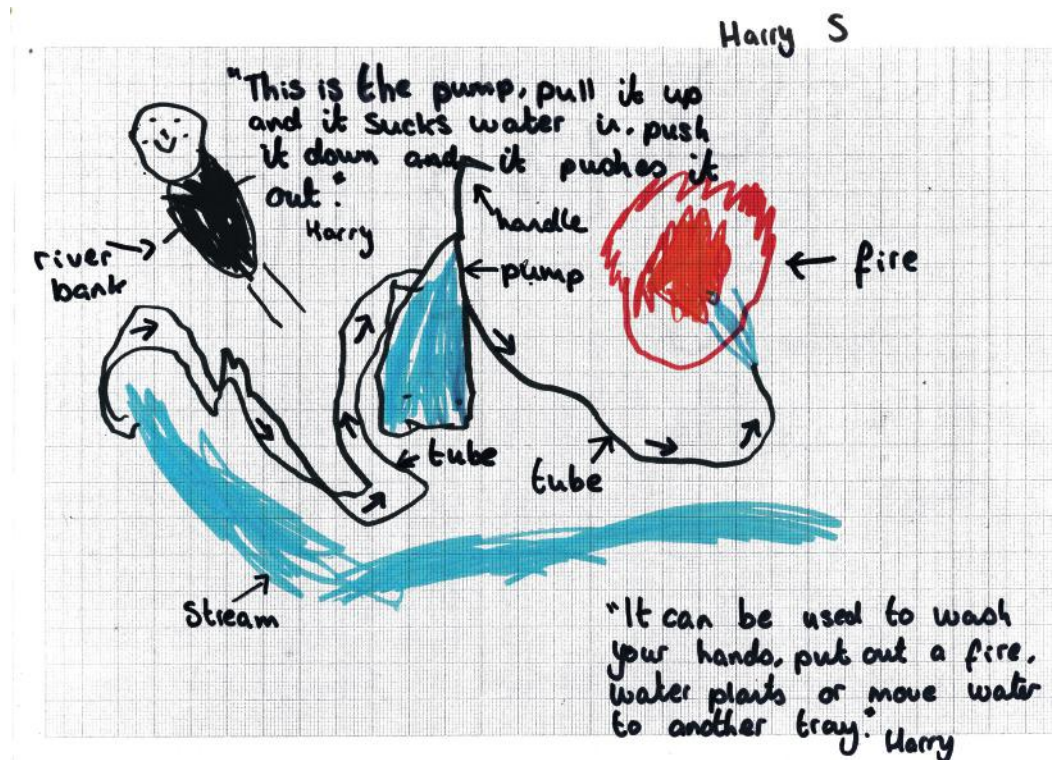 Harry S
"This is the pump, pull it up
and it sucks water in, push
it down and it pushes it
out."
Harry
handle
river
bank
pump
fire
tube
tube
Stream
"It can be used to wash
your hands, put out a fire,
water plants or move water
to another tray."
Harry